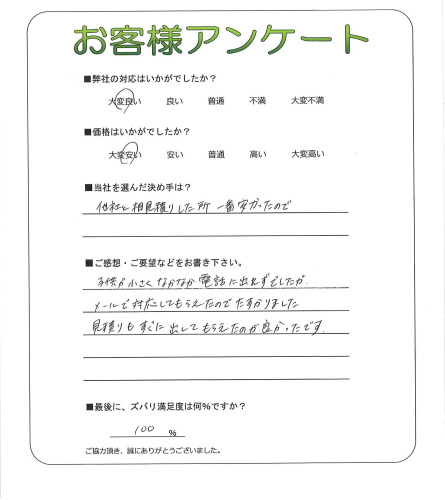 お客様アンケート
■弊社の対応はいかがでしたか?
大変良い 良い 普通 不満 大変不満
■価格はいかがでしたか?
大変安い 安い 普通 高い 大変高い
■当社を選んだ決め手は?
他社と相見積りした所 一番安かったので
■ご感想・ご要望などをお書き下さい。
子供が小さく なかなか 電話に出れずでしたが、
メールで対応してもらえたのでたすかりました
見積りも すぐに 出してもらえたのが良かったです。
■最後に、ズバリ満足度は何%ですか?
100 %
ご協力頂き、誠にありがとうございました。